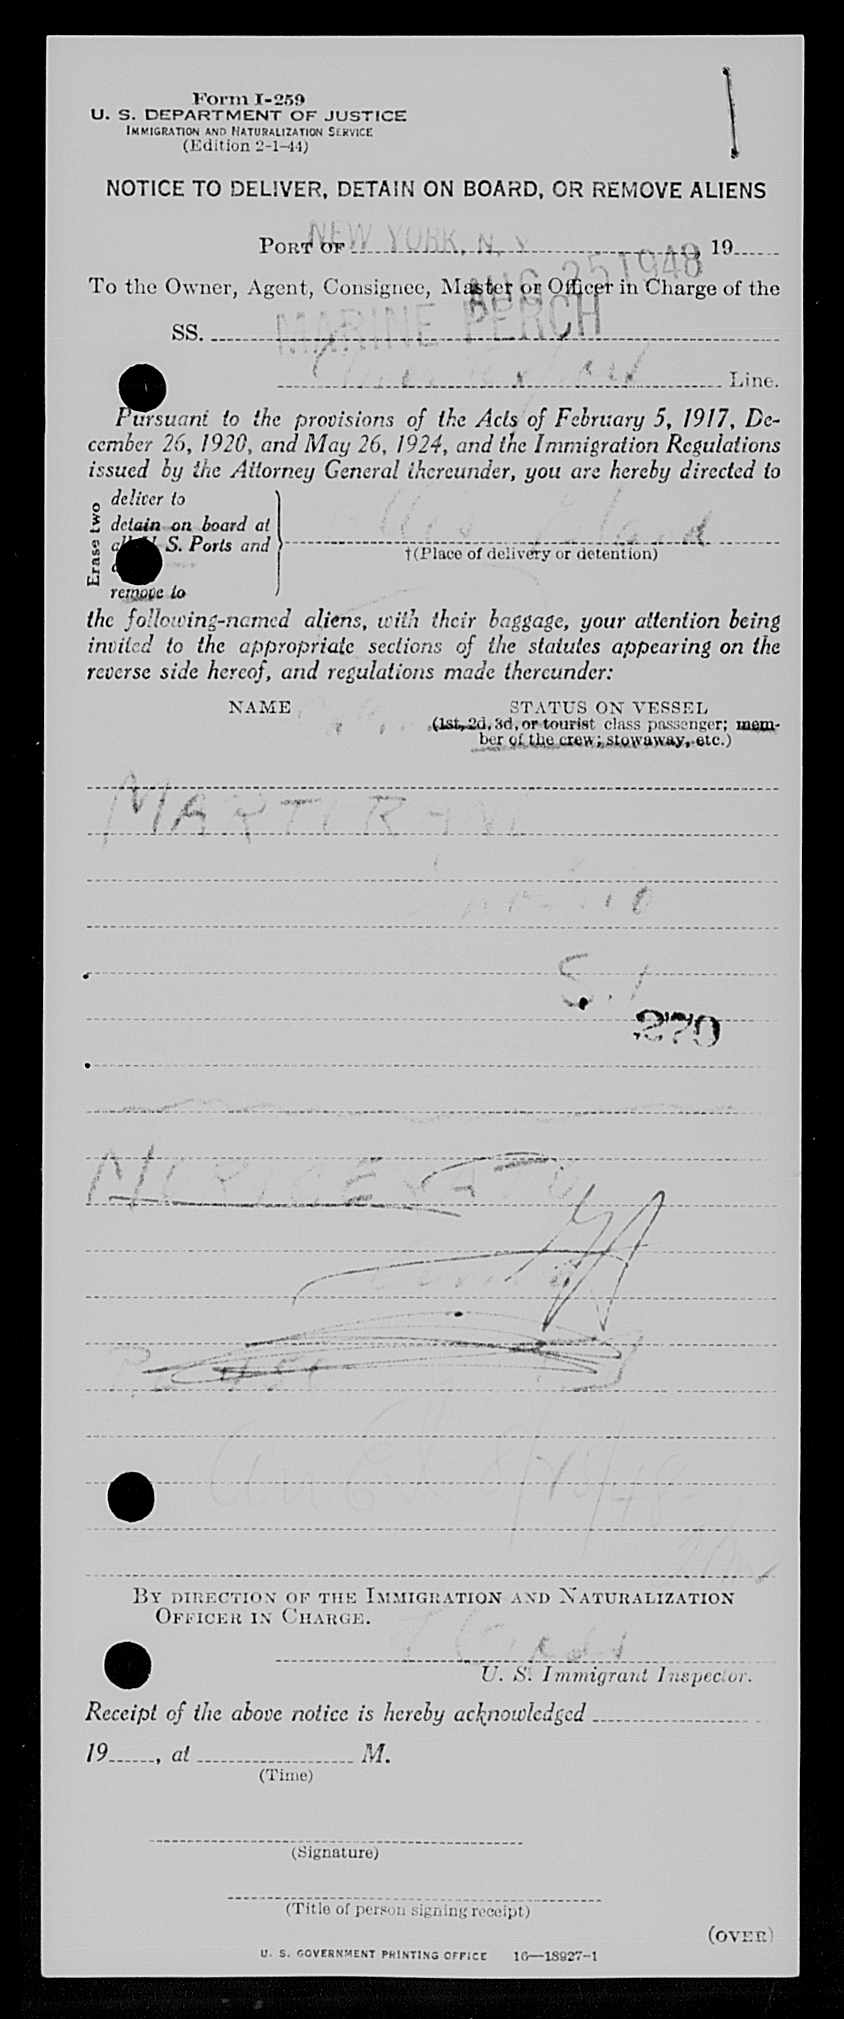 Form I-259
U. S. DEPARTMENT OF JUSTICE
IMMIGRATION AND NATURALIZATION SERVICE
(Edition 2-1-44)
NOTICE TO DELIVER, DETAIN ON BOARD, OR REMOVE ALIENS
PORT OF NEW YORK, N. Y. 19
AUG 25 1948
To the Owner, Agent, Consignee, Master or Officer in Charge of the
SS. MARINE PERCH
Line.
Pursuant to the provisions of the Acts of February 5, 1917, De-
cember 26, 1920, and May 26, 1924, and the Immigration Regulations
issued by the Attorney General thereunder, you are hereby directed to
Erase two
deliver to
detain on board at
all U. S. Ports and
remove to
Ellis Island
†(Place of delivery or detention)
the following-named aliens, with their baggage, your attention being
invited to the appropriate sections of the statutes appearing on the
reverse side hereof, and regulations made thereunder:
NAME STATUS ON VESSEL
(1st, 2d, 3d, or tourist class passenger; mem-
ber of the crew; stowaway, etc.)
S.I
270
8/25/48
BY DIRECTION OF THE IMMIGRATION AND NATURALIZATION
OFFICER IN CHARGE.
U. S. Immigrant Inspector.
Receipt of the above notice is hereby acknowledged
19, at M.
(Time)
(Signature)
(Title of person signing receipt)
(OVER)
U. S. GOVERNMENT PRINTING OFFICE 16—18927-1